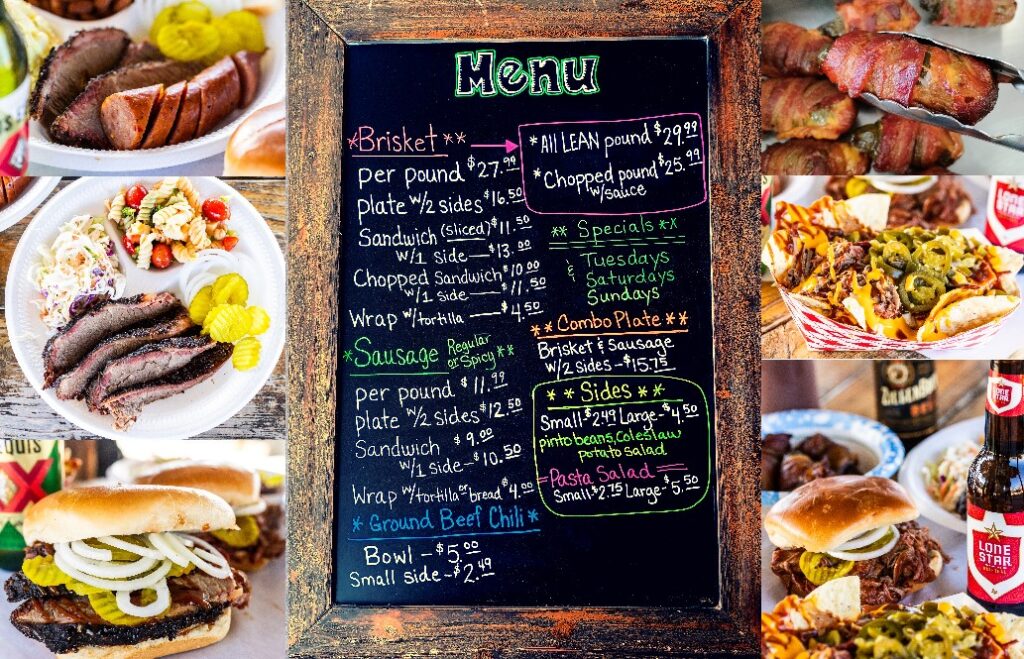 Menu
*Brisket **
per pound $27.99
plate w/2 sides $16.50
Sandwich (sliced) $11.50
w/1 side — $13.00
Chopped Sandwich $10.00
w/1 side — $11.50
Wrap w/tortilla — $4.50
*Sausage Regular or Spicy **
per pound $11.99
plate w/2 sides $12.50
Sandwich $9.00
w/1 side - $10.50
Wrap w/tortilla or bread $4.00
*Ground Beef Chili*
Bowl - $5.00
Small side - $2.49
*All LEAN pound $29.99
*Chopped pound $25.99
w/sauce
** Specials **
& Tuesdays
Saturdays
Sundays
**Combo Plate**
Brisket & Sausage
w/2 sides - $15.75
** Sides **
Small $2.49 Large - $4.50
pinto beans, Coleslaw
potato salad
Pasta Salad
Small $2.75 Large - $5.50
XX
LONE STAR
LONE
STAR